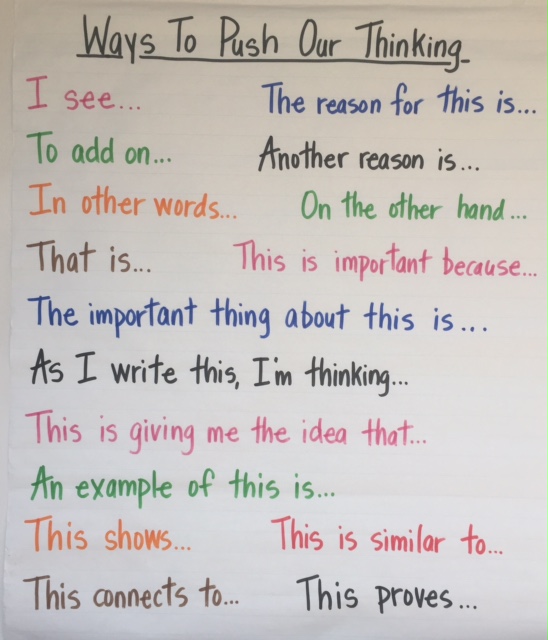 Ways To Push Our Thinking
I see... The reason for this is...
To add on... Another reason is...
In other words... On the other hand...
That is... This is important because...
The important thing about this is...
As I write this, I'm thinking...
This is giving me the idea that...
An example of this is...
This shows... This is similar to...
This connects to... This proves...